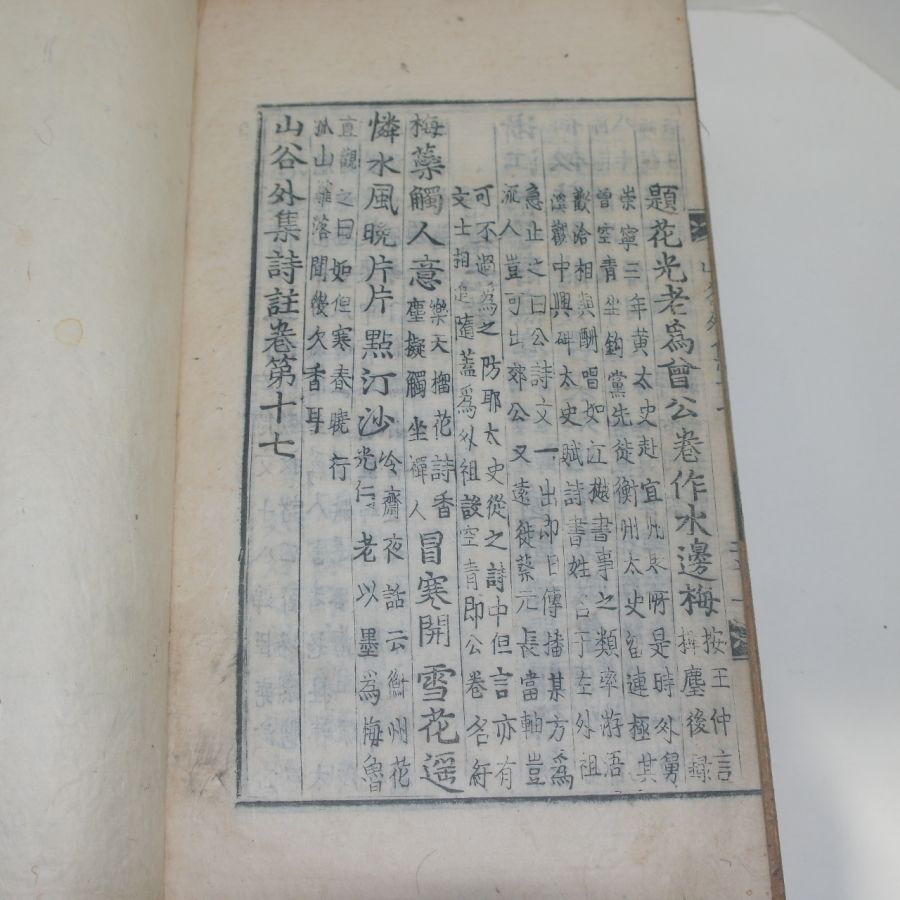 題花光老爲曾公卷作水邊梅
按王仲言
揮麈後錄
崇寧三年黃太史赴宜州是時外舅
曾空青坐鈎黨先徙衡州太史留連極其
歡洽相與酬唱如江樾書事之類率游浯
溪觀中興碑太史賦詩書姓名于左外祖
急止之曰公詩文一出即日傳播某方爲
流人豈可出郊公又遠徙蔡元長當軸豈
可不過爲之防耶太史從之詩中但言亦有
文士相追隨蓋爲外祖設空青即公卷名
梅蘂觸人意
樂天榴花詩香
塵擬觸坐禪人
冒寒開雪花遥
憐水風晚片片點汀沙
冷齋夜話云衡州花
光仁老以墨爲梅魯
直觀之曰如但寒春曉行
孤山籬落間後欠香耳
山谷外集詩註卷第十七